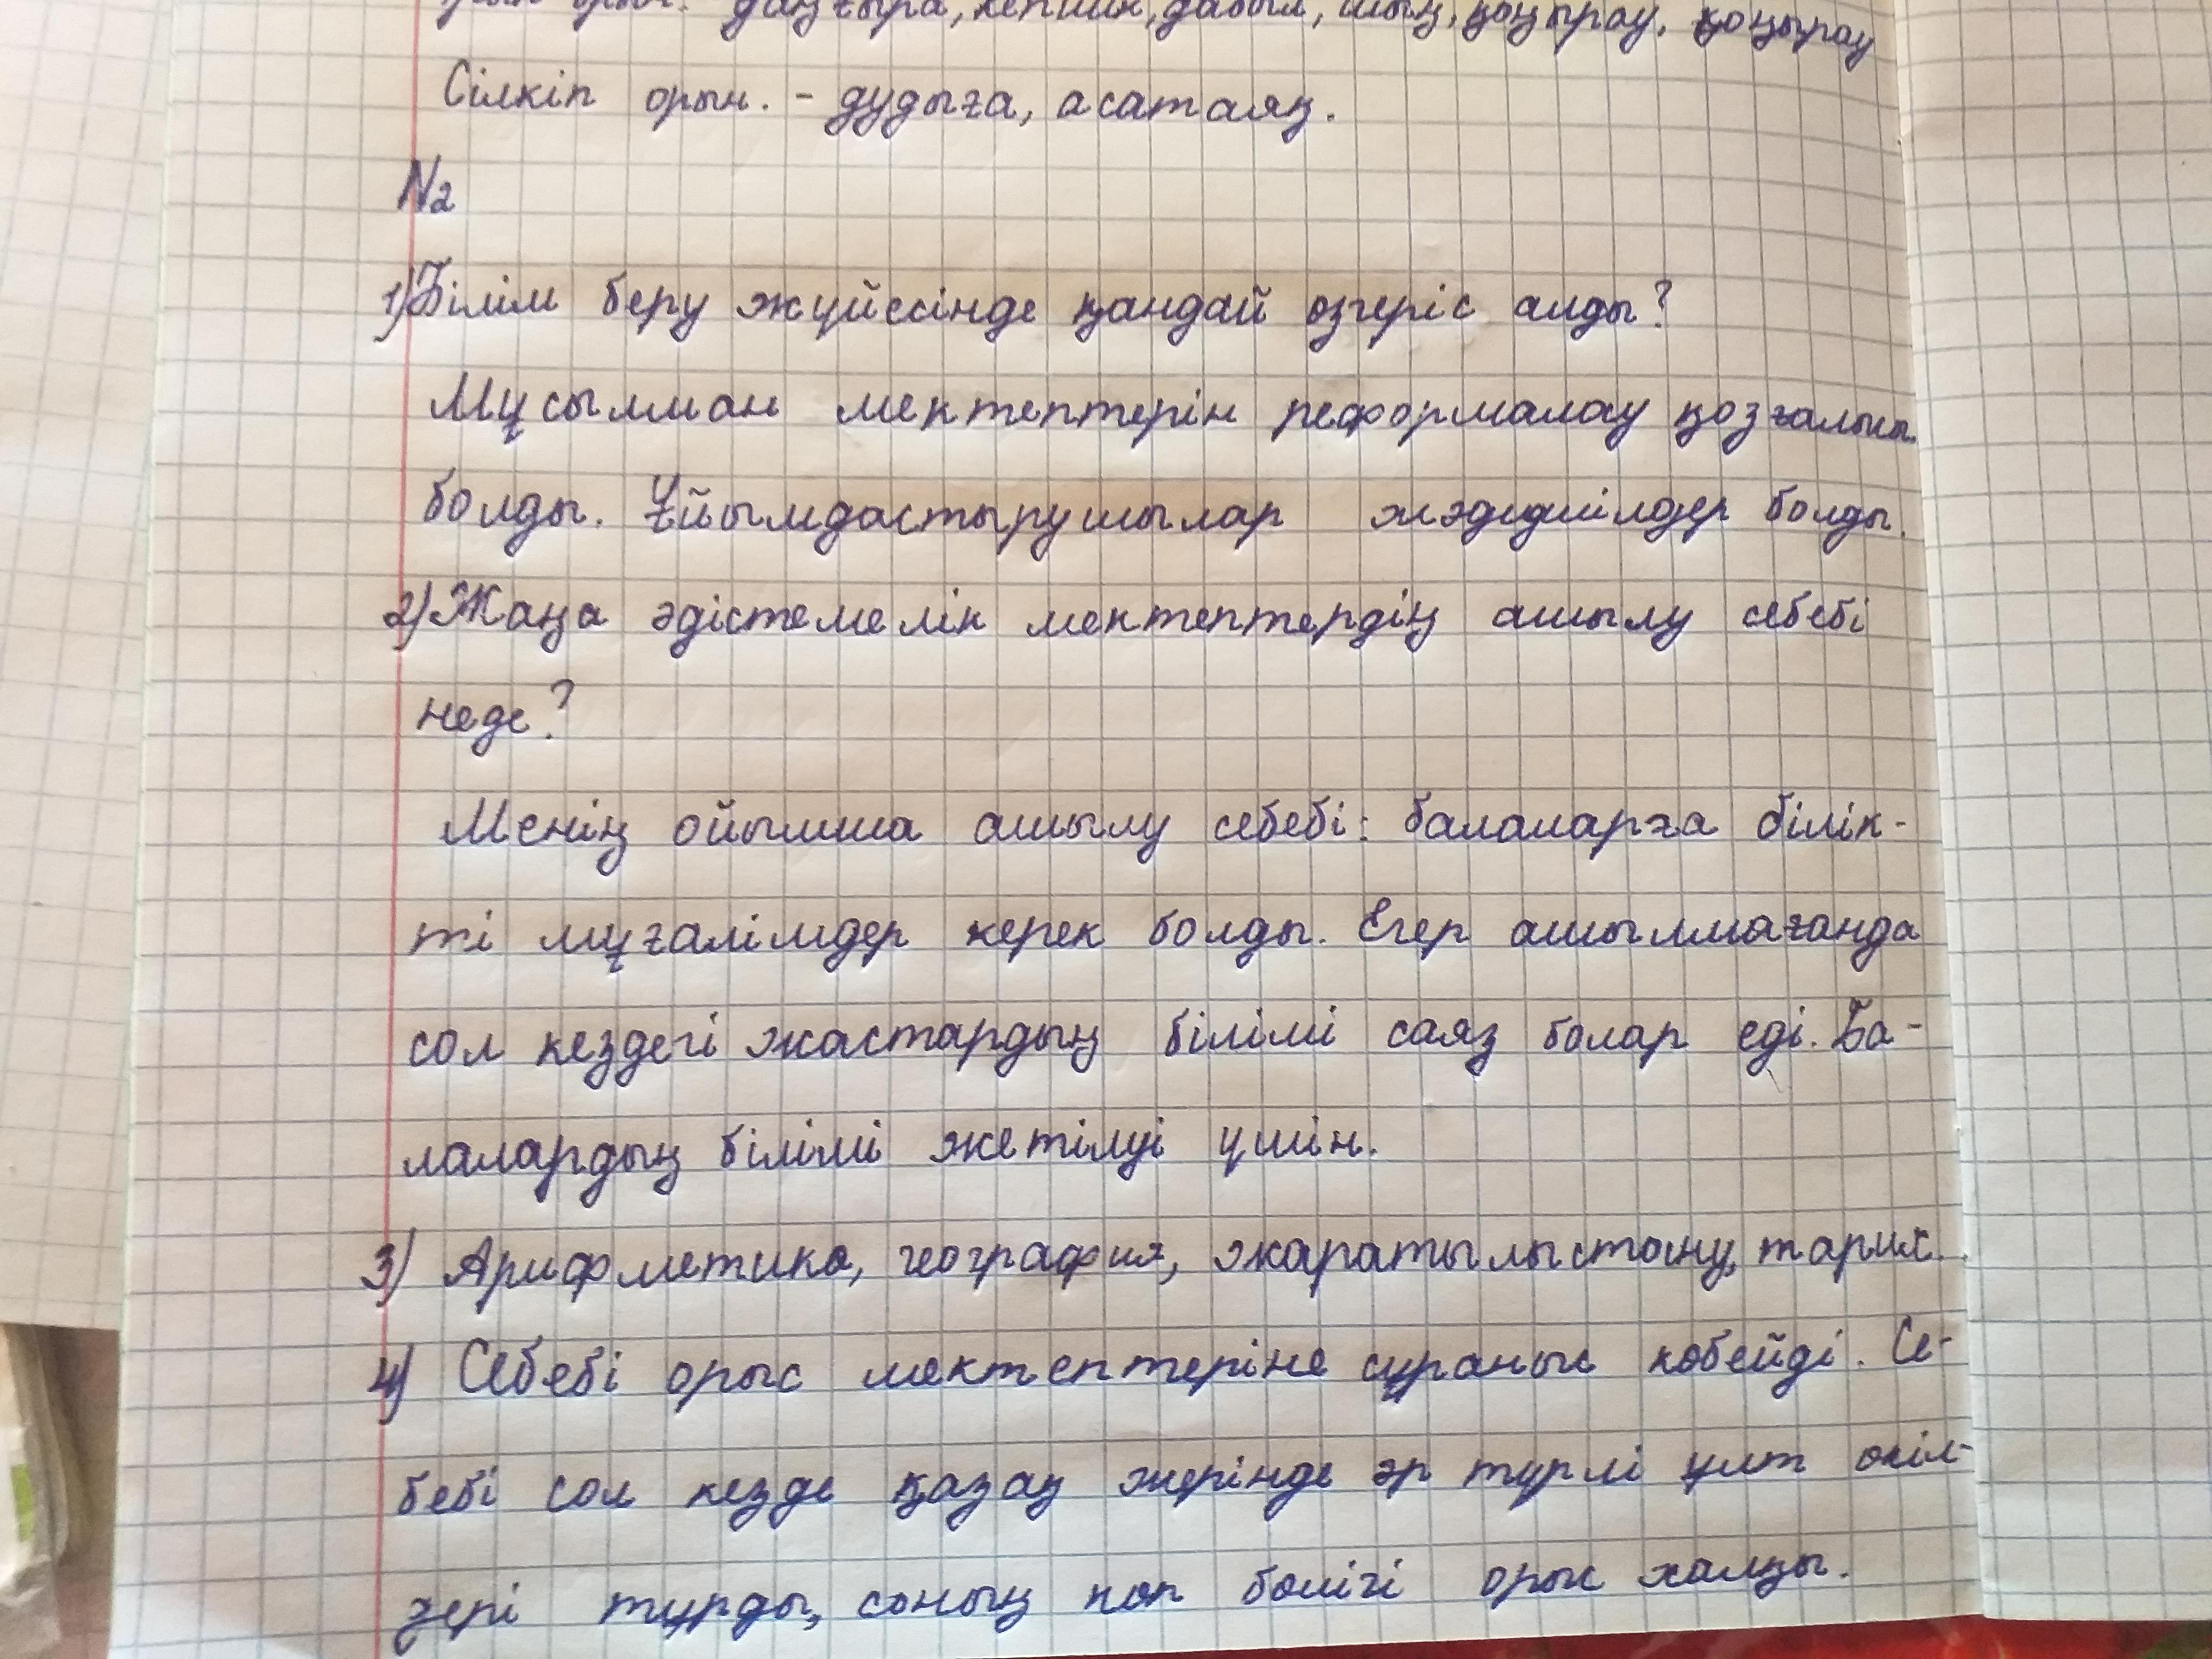 даңғыра, кепшік, дабыл, шың, қоңырау, қоңырау
Сілкіп орын. - дудыға, асатаяқ.
N2
1) Білім беру жүйесінде қандай өзгеріс алды?
Мұсылман мектептерін реформалау қозғалысы
болды. Ұйымдастырушылар жәдидшілдер болды.
2) Жаңа әдістемелік мектептердің ашылу себебі
неде?
Менің ойымша ашылу себебі: балаларға білік-
ті мұғалімдер керек болды. Егер ашылмағанда
сол кездегі жастардың білімі саяз болар еді. Ба-
лалардың білімі жетілуі үшін.
3) Арифметика, география, жаратылыстану, тарих.
4) Себебі орыс мектептеріне сұраныс көбейді. Се-
бебі сол кезде қазақ жерінде әр түрлі ұлт өкіл-
дері тұрды, соның көп бөлігі орыс халқы.